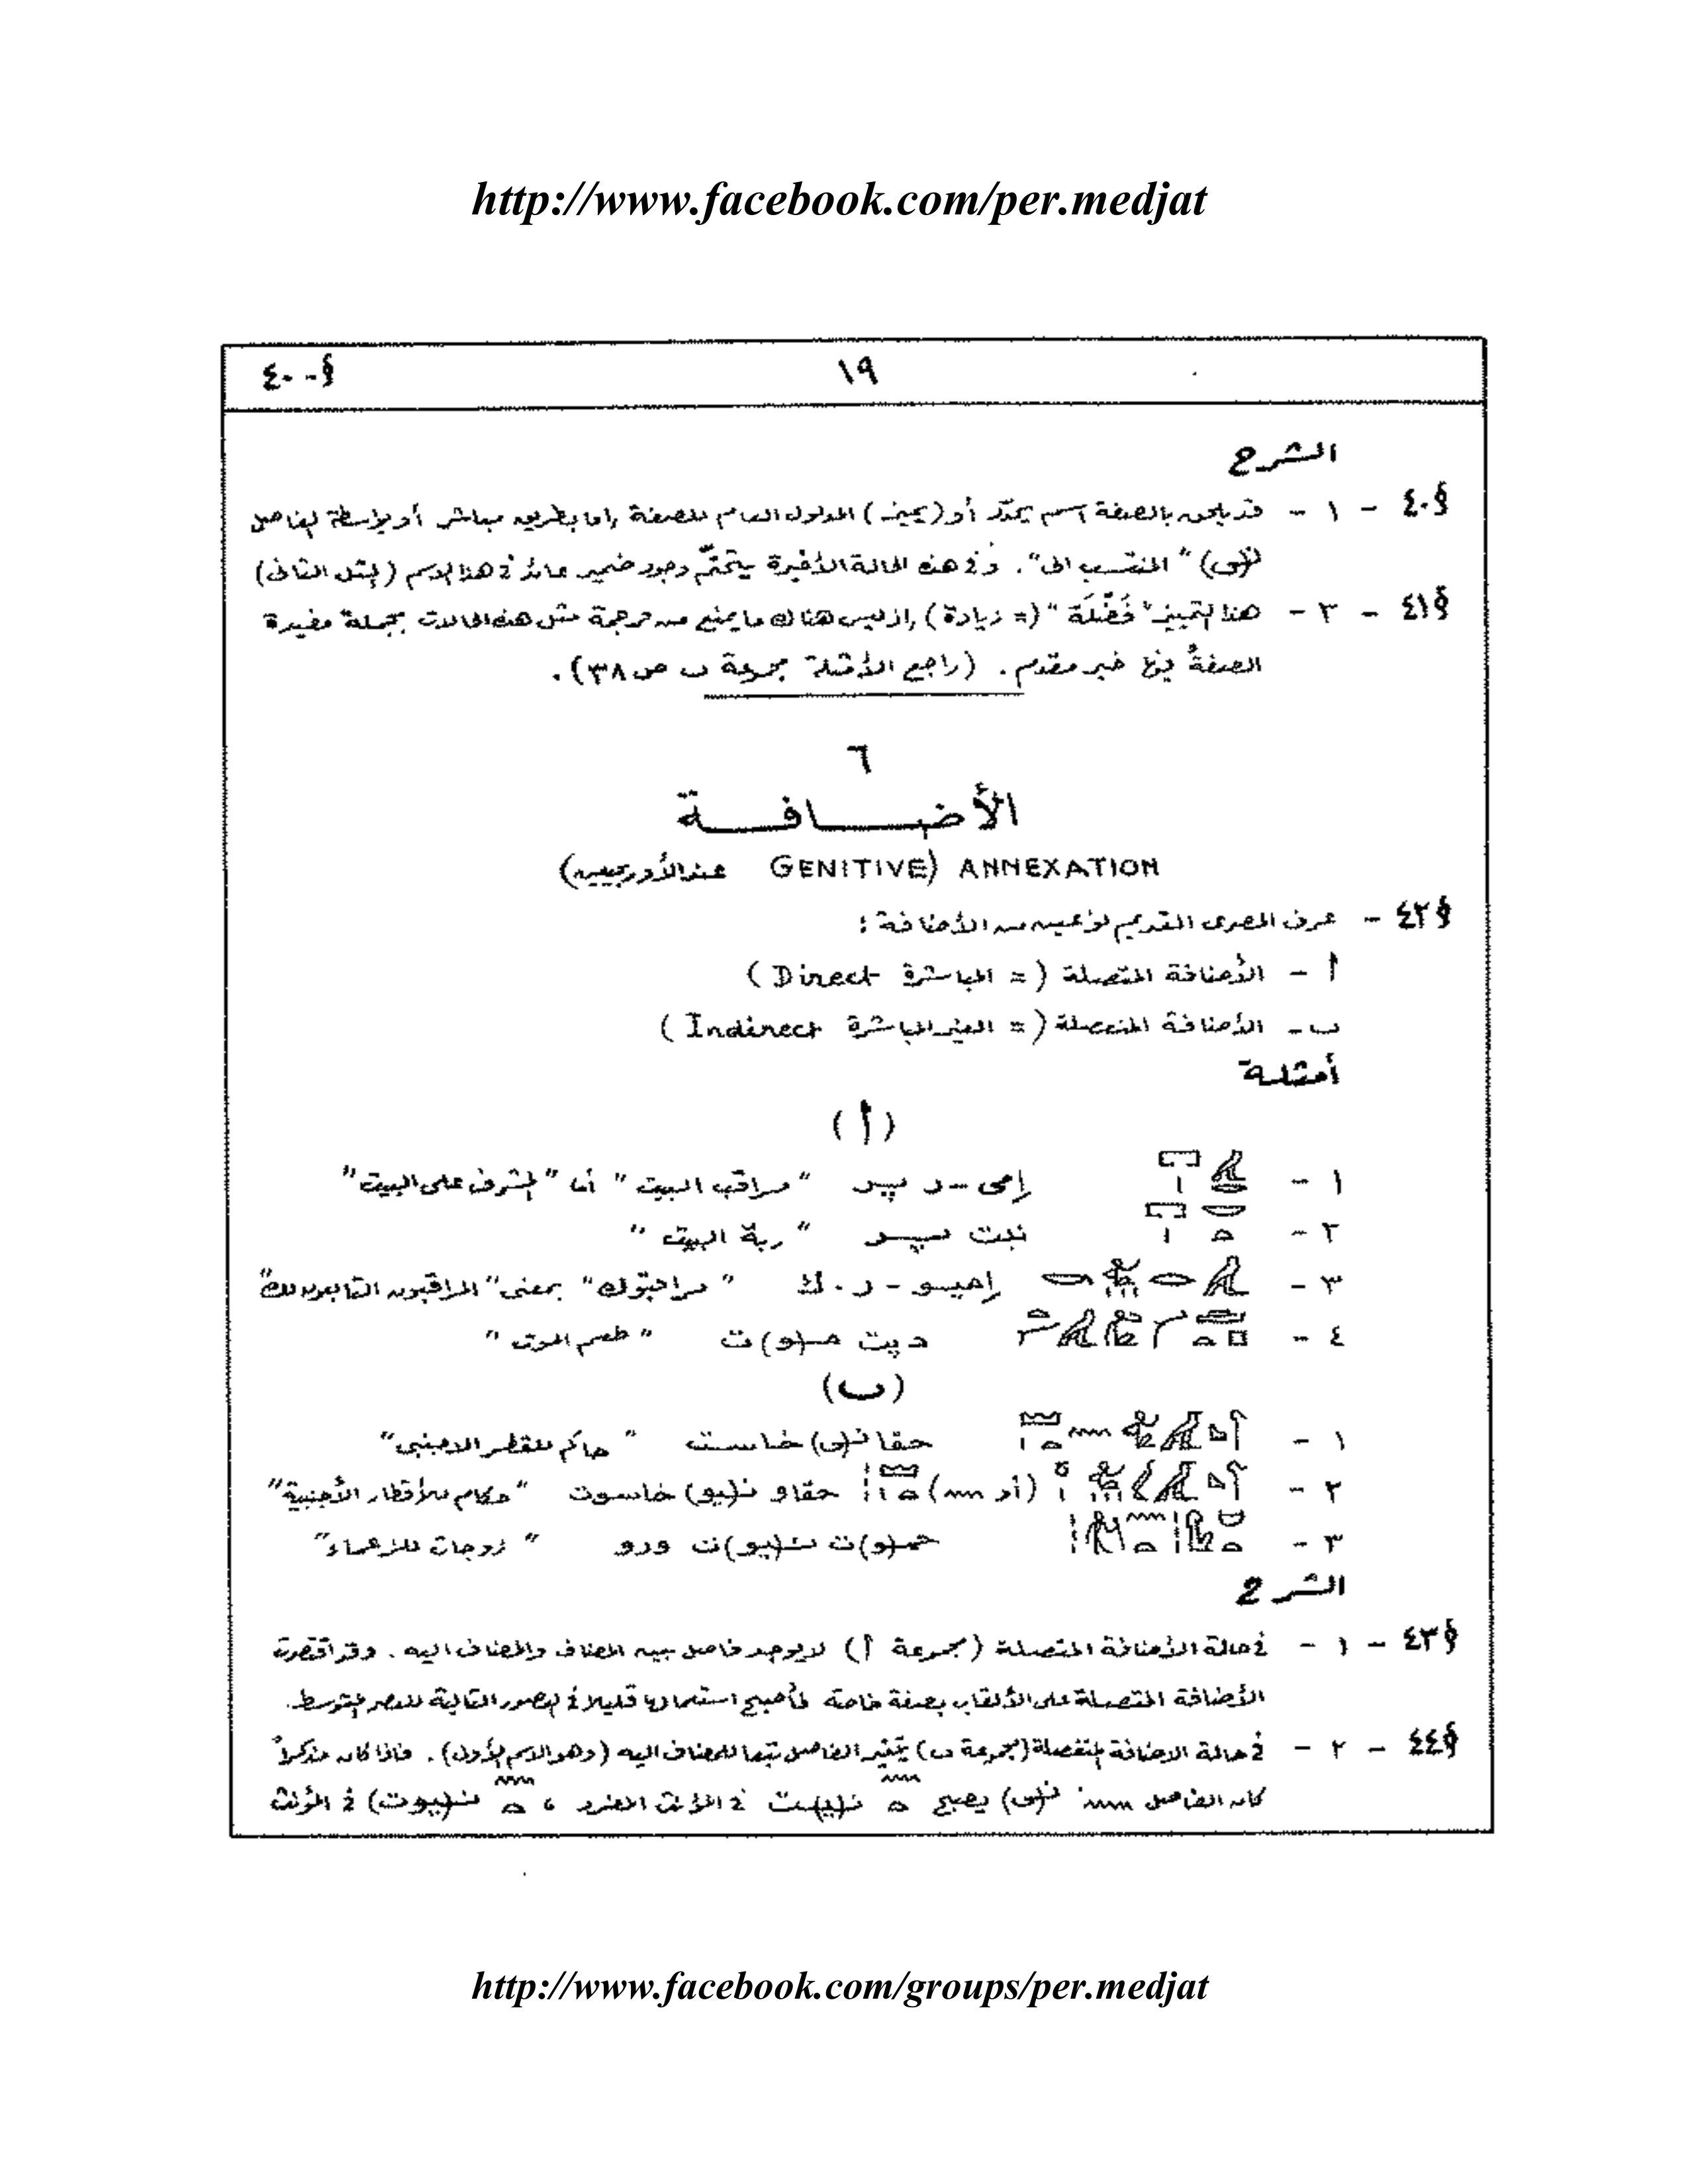 http://www.facebook.com/per.medjat
§-٤٠
١٩
الشرح
§٤٠ - ١ - قد يلحق بالصفة اسم يحدّد أو (يميز) المدلول العام للصفة إما بطريق مباشر أو بواسطة الفاصل
ن(ى) "المنتسب الى". وفى هذه الحالة الأخيرة يتحتّم وجود ضمير عائد فى هذا الاسم (المثل الثانى)
§٤١ - ٣ - هذا التمييز "فَضْلَة" (= زيادة) إذ ليس هناك ما يمنع من ترجمة مثل هذه الحالات بجملة مفيدة
الصفةُ فيها خبر مقدم. (راجع الأمثلة مجموعة ب ص ٣٨).
٦
الأضافة
GENITIVE) ANNEXATION عند الأوربيين)
§٤٢ - عرف المصرى القديم نوعين من الأضافة :
أ - الأضافة المتصلة (= المباشرة Direct)
ب - الأضافة المنفصلة (= الغير المباشرة Indirect)
أمثلة
(أ)
١ - إمى-ر پر "مراقب البيت" أما "المشرف على البيت"
٢ - نبت پر "ربة البيت"
٣ - إميو-ر.ك "مراقبوك" بمعنى "المراقبون التابعون لك"
٤ - دپت م(و)ت "طعم الموت"
(ب)
١ - حقا ن(ى) خاست "حاكم للقطر الاجنبى"
٢ - (أو) حقاو ن(يو) خاسوت "حكام للأقطار الأجنبية"
٣ - حم(و)ت ن(يو)ت ورو "زوجات للزعماء"
الشرح
§٤٣ - ١ - فى حالة الأضافة المتصلة (مجموعة أ) لا يوجد فاصل بين المضاف والمضاف اليه. وقد اقتصرت
الأضافة المتصلة على الألقاب بصفة خاصة فأصبح استعمالها قليلا فى العصور التالية للعصر المتوسط.
§٤٤ - ٢ - فى حالة الاضافة المنفصلة (مجموعة ب) يتغير الفاصل تبعا للمضاف اليه (وهو الاسم الأول). فاذا كان مذكراً
كان الفاصل ن(ى) يصبح ن(ي)ت فى المؤنث المفرد ، ن(يوت) فى المؤنث
http://www.facebook.com/groups/per.medjat